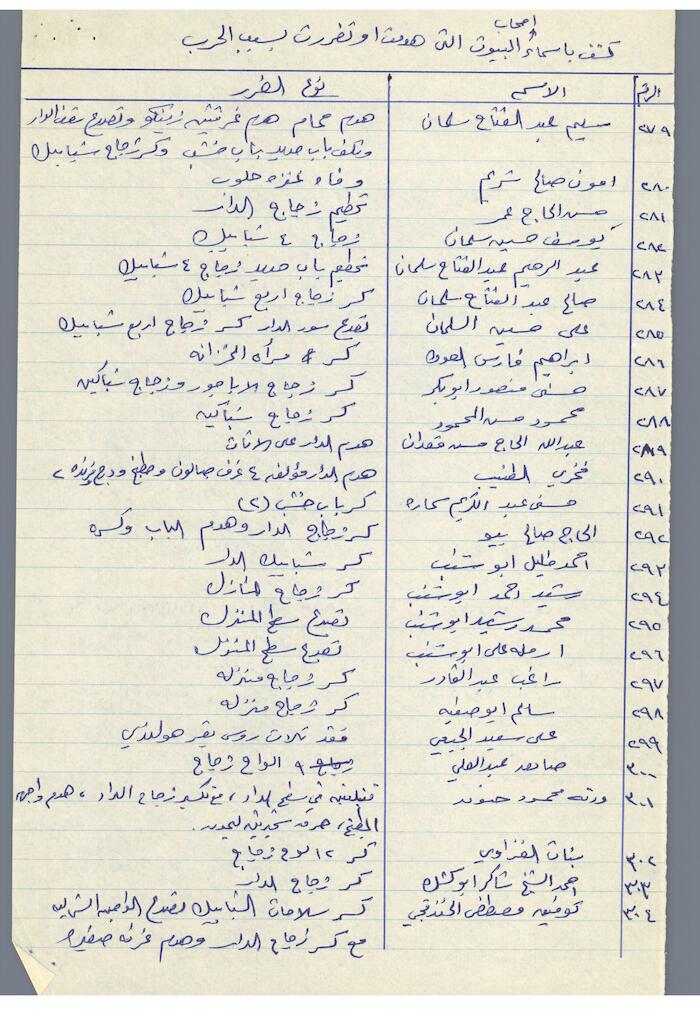 كشف باسماء اصحاب البيوت التي هدمت او تضررت بسبب الحرب
الرقم الاسم نوع الضرر
٢٧٩ سليم عبد الفتاح سلمان هدم حمام هدم غرفتين زينكو وتصدع سقف الدار
وتلف باب حديد باب خشب وكسر زجاج شبابيك
٢٨٠ امون صالح شريم وفاة عنزه حلوب
٢٨١ حسن الحاج عمر تحطيم زجاج الدار
٢٨٢ يوسف حسين سلمان زجاج ٤ شبابيك
٢٨٣ عبد الرحيم عبد الفتاح سلمان تحطيم باب حديد زجاج ٤ شبابيك
٢٨٤ صالح عبد الفتاح سلمان كسر زجاج اربع شبابيك
٢٨٥ على حسين السلمان تصدع سور الدار كسر زجاج اربع شبابيك
٢٨٦ ابراهيم فارس العوده كسر مرأه الخزانه
٢٨٧ حسني منصور ابو بكر كسر زجاج الاباجور وزجاج شباكين
٢٨٨ محمود حسن المحمود كسر زجاج شباكين
٢٨٩ عبدالله الحاج حسن هدم الدار على الاثاث
٢٩٠ فخري هدم الدار مؤلفه ٤ غرف صالون ومطبخ
٢٩١ حسني عبد الكريم كسر باب خشب (٢)
٢٩٢ الحاج صالح كسر زجاج الدار وهدم الباب وكسره
٢٩٣ احمد خليل ابو شنب كسر شبابيك الدار
٢٩٤ رشيد احمد ابو شنب كسر زجاج المنازل
٢٩٥ محمد رشيد ابو شنب تصدع سطح المنزل
٢٩٦ ارمله على ابو شنب تصدع سطح المنزل
٢٩٧ راغب عبد القادر كسر زجاج منزله
٢٩٨ سالم ابو صفيه كسر زجاج منزله
٢٩٩ على سعيد فقد ثلاث روس بقر هولندي
٣٠٠ عبد العلي ٩ الواح زجاج
٣٠١ ورثه محمود في سطح الدار، مع تكسير زجاج الدار، هدم واجهه
المطبخ، حرق
٣٠٢ بنات الغزاوي كسر ١٢ لوح زجاج
٣٠٣ احمد الشيخ شاكر ابو كشك كسر زجاج الدار
٣٠٤ توفيق مصطفى الخندقجي كسر الشبابيك تصدع الواجهه الشماليه
مع كسر زجاج الدار وهدم غرفه صغيره